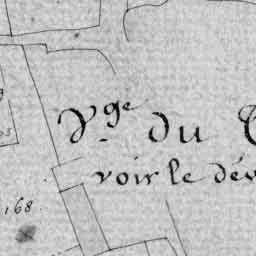 Vge du
voir le dév
168